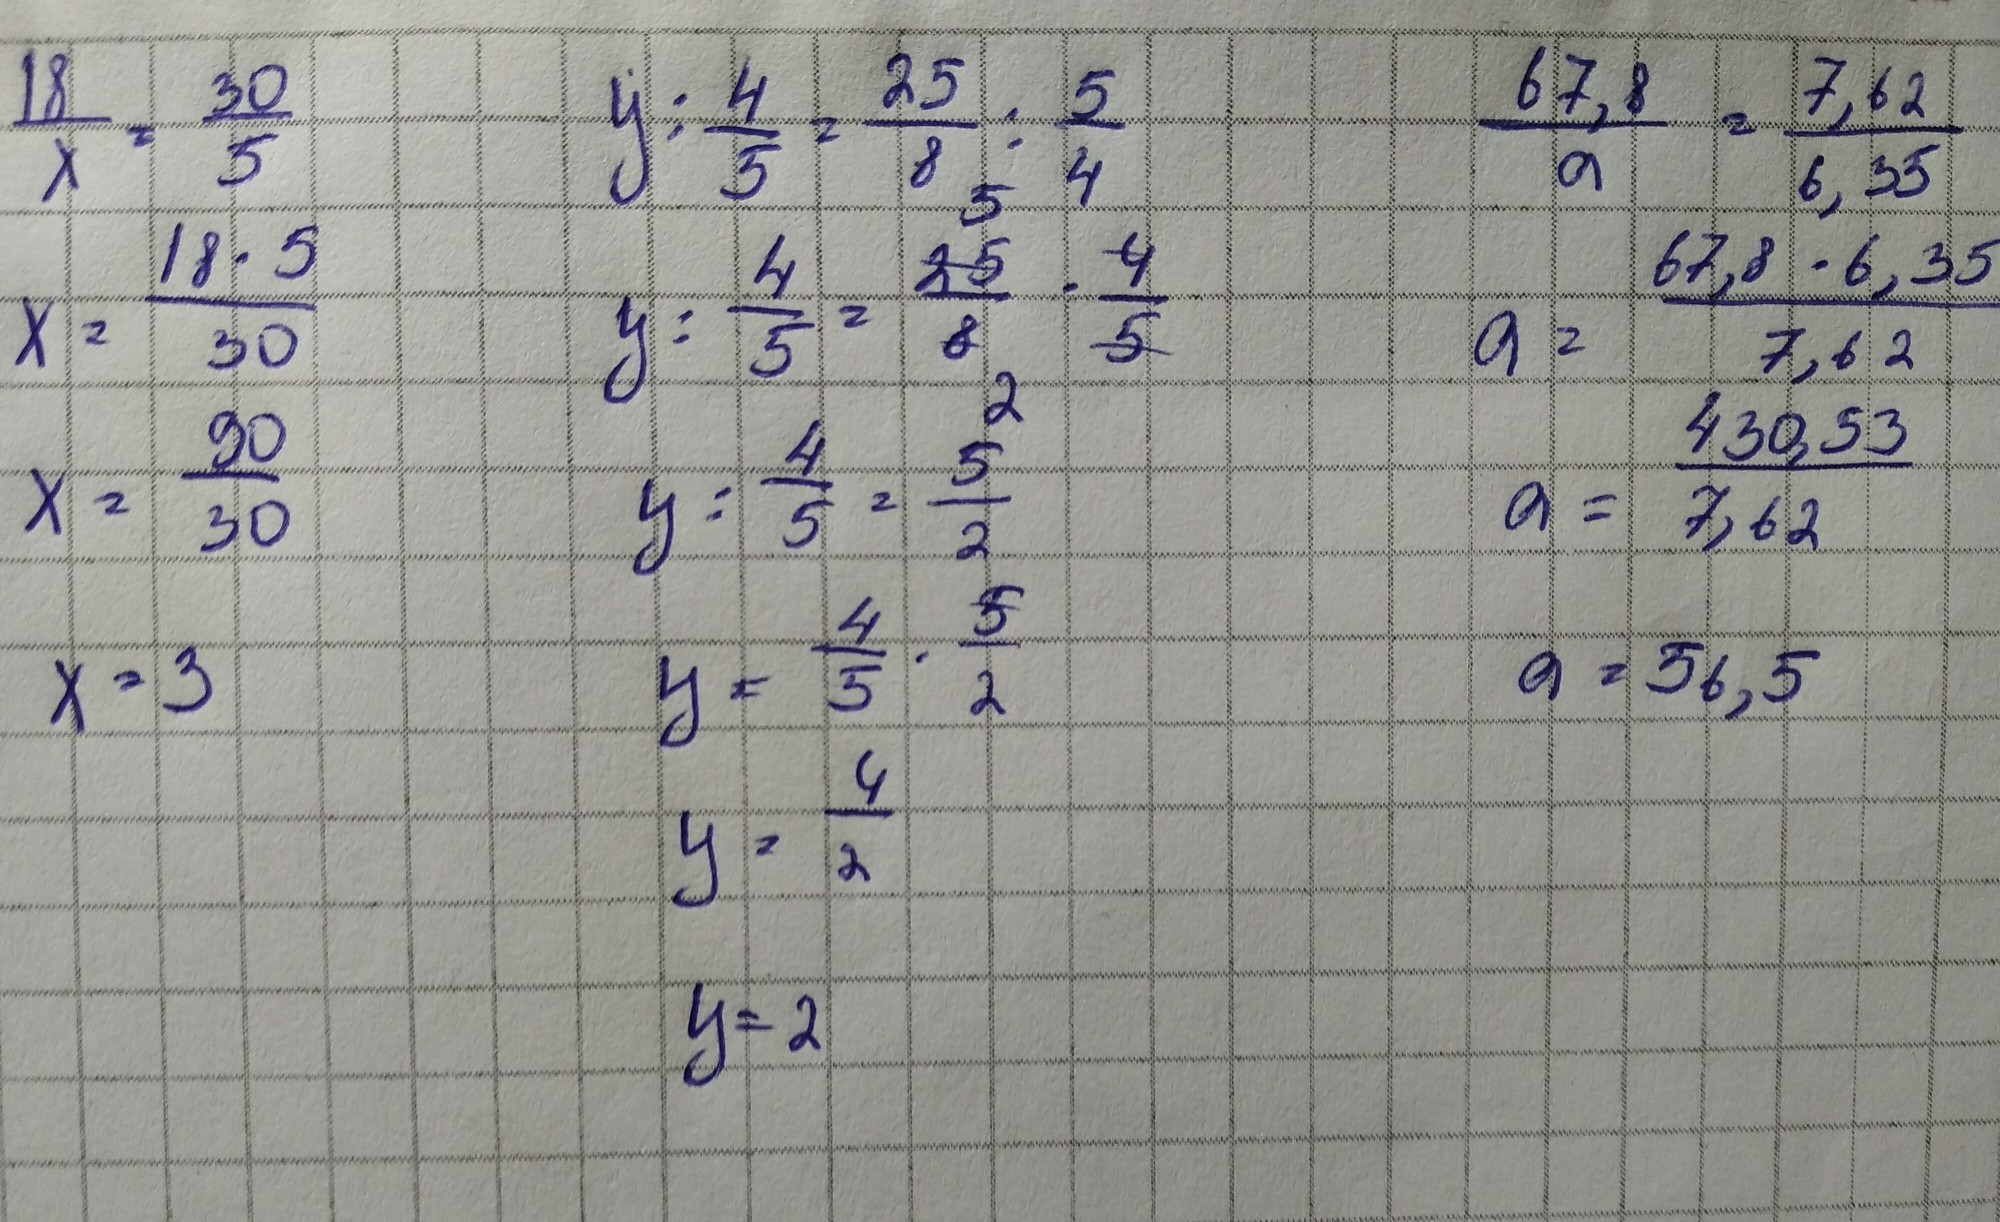 18/x = 30/5
x = 18·5/30
x = 90/30
x = 3
y : 4/5 = 25/8 : 5/4
5
y : 4/5 = 25/8 · 4/5
2
y : 4/5 = 5/2
y = 4/5 · 5/2
y = 4/2
y = 2
67,8/a = 7,62/6,35
a = 67,8·6,35/7,62
a = 430,53/7,62
a = 56,5